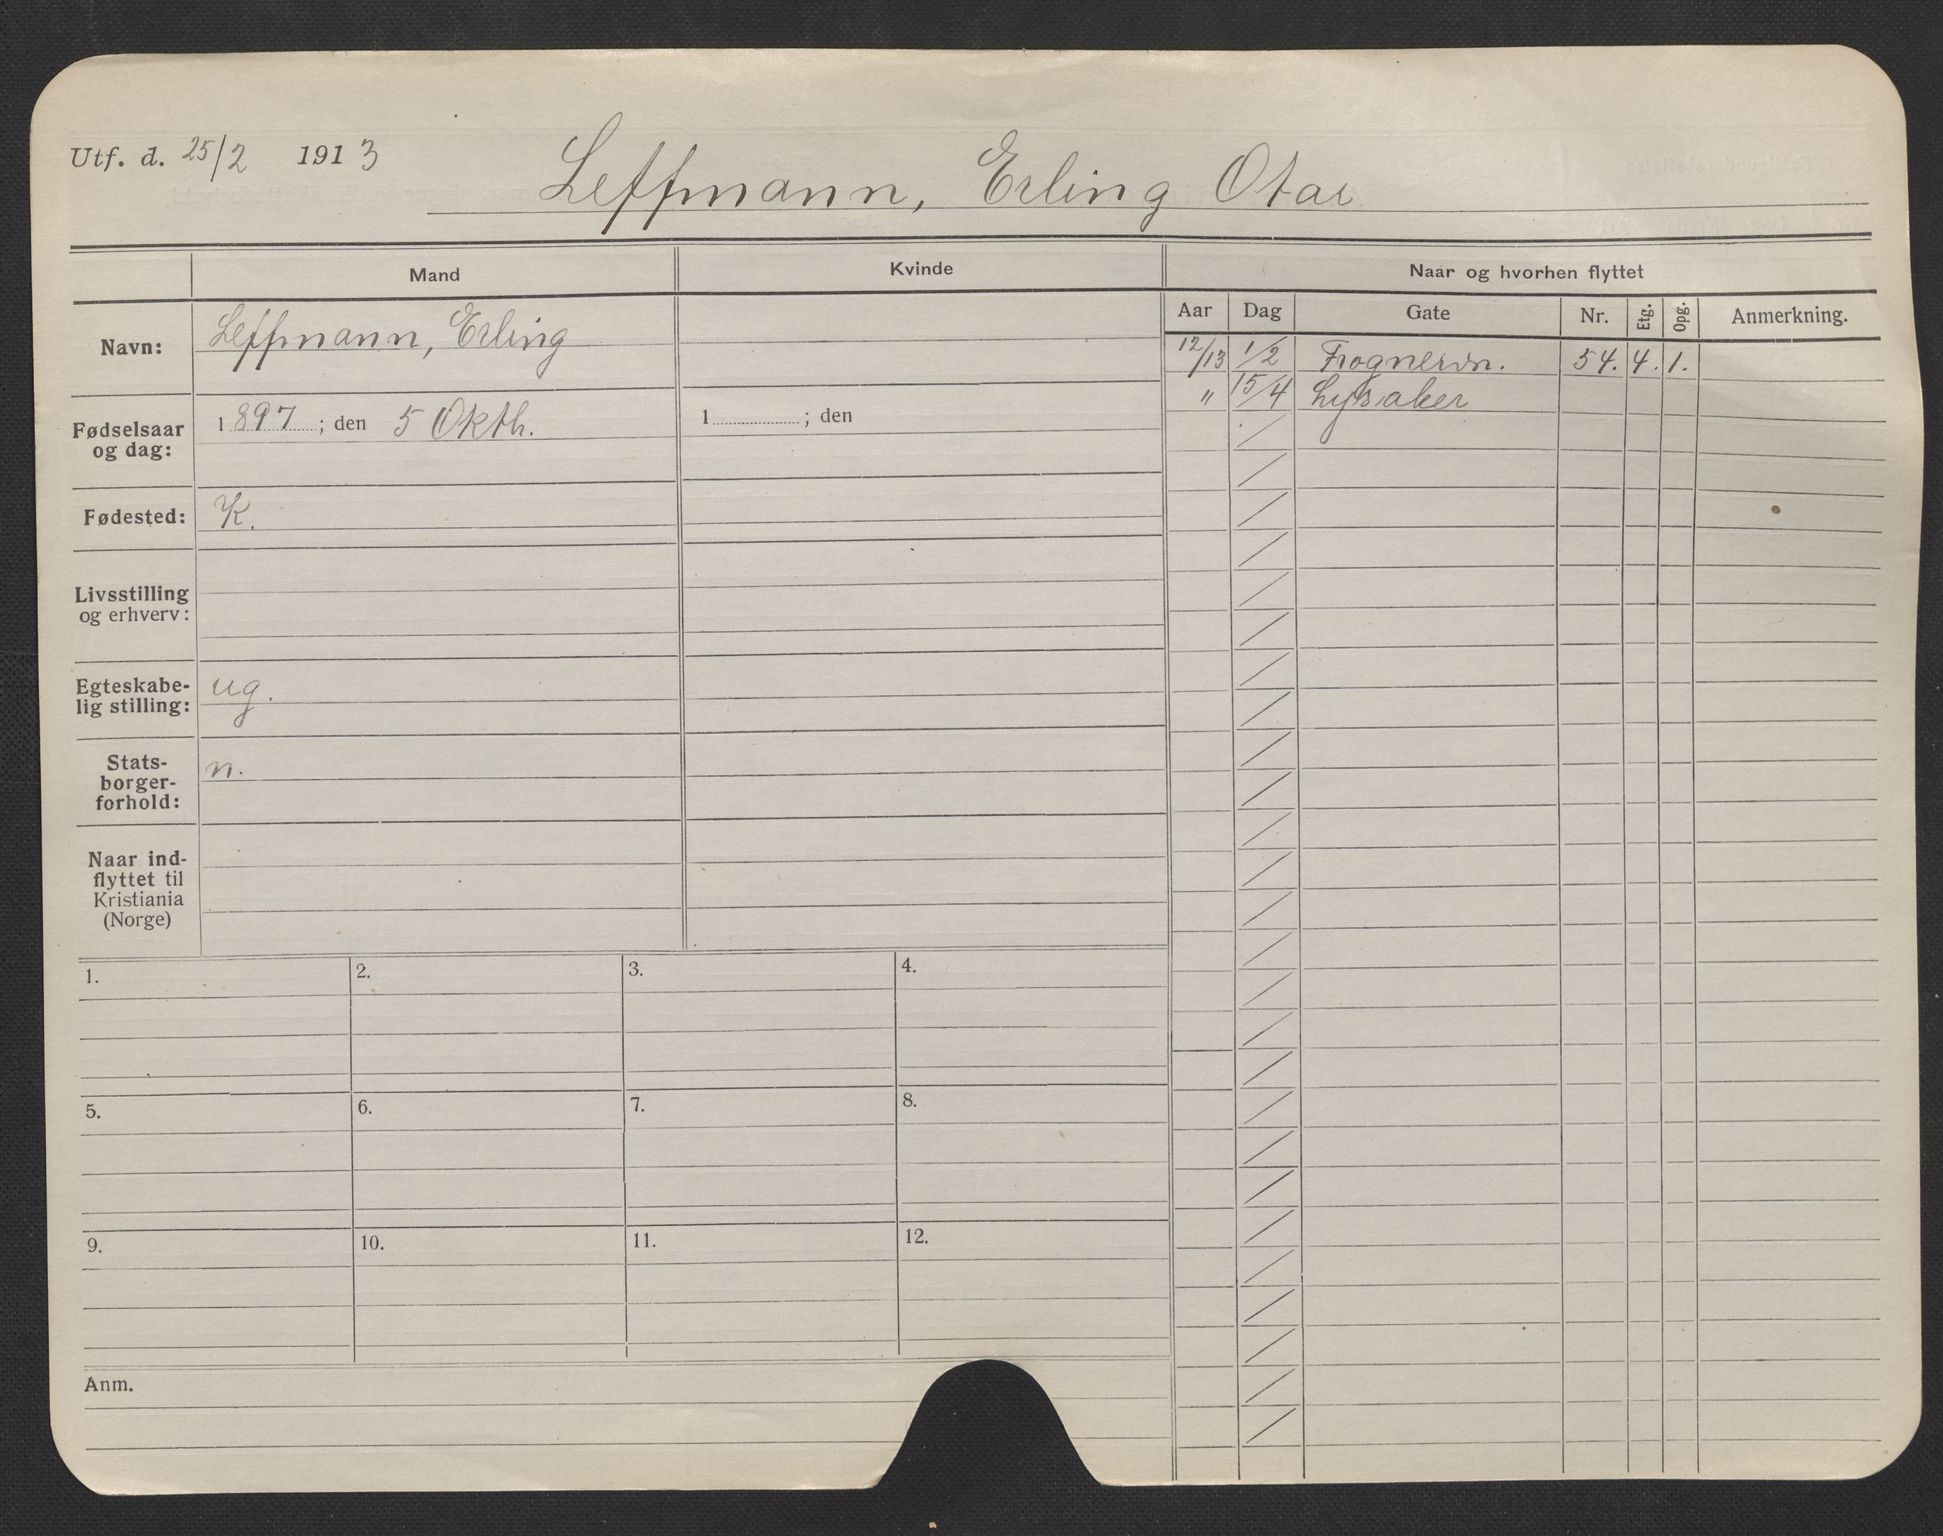 Utf. d. 25/2 1913
Leffmann, Erling Otar
Mand
Kvinde
Naar og hvorhen flyttet
Aar Dag Gate Nr. Etg. Opg. Anmerkning.
Navn: Leffmann, Erling
12/13 1/2 Frognervn. 54. 4. 1.
" 15/4 Lysaker
Fødselsaar
og dag:
1897; den 5 Okth.
1 ; den
Fødested: K.
Livsstilling
og erhverv:
Egteskabe-
lig stilling:
ug.
Stats-
borger-
forhold:
n.
Naar ind-
flyttet til
Kristiania
(Norge)
1. 2. 3. 4.
5. 6. 7. 8.
9. 10. 11. 12.
Anm.